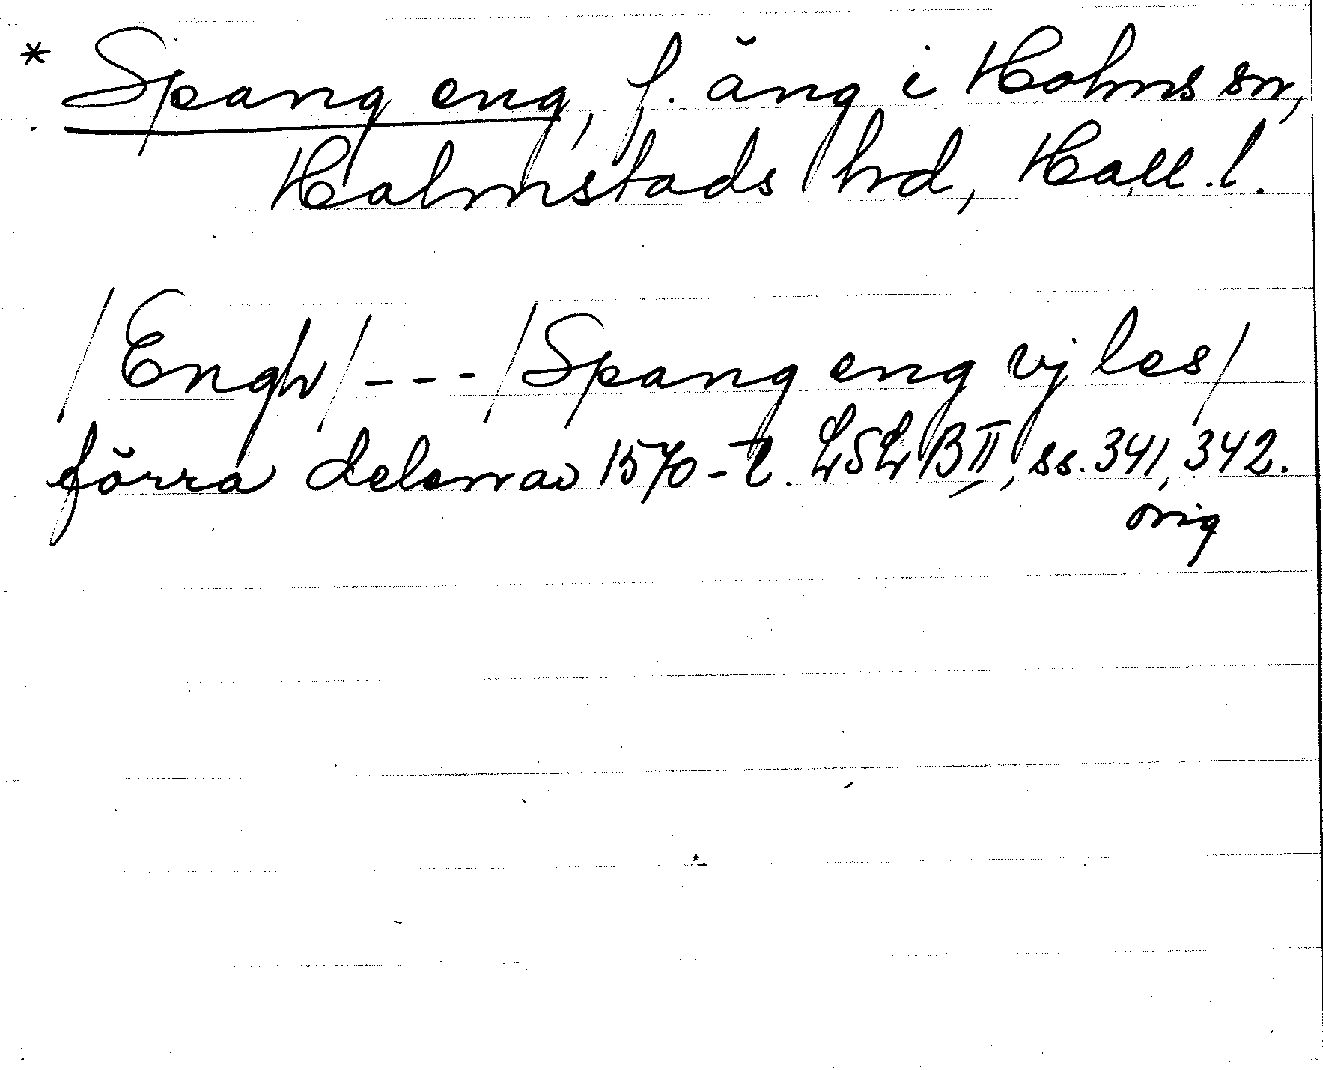 * Spang eng, f. äng i Holms sn,
Halmstads hrd, Hall.l.
/Engh/---/Spang eng vj les/
förra delen av 1570-t. LSL BII, ss. 341, 342.
orig